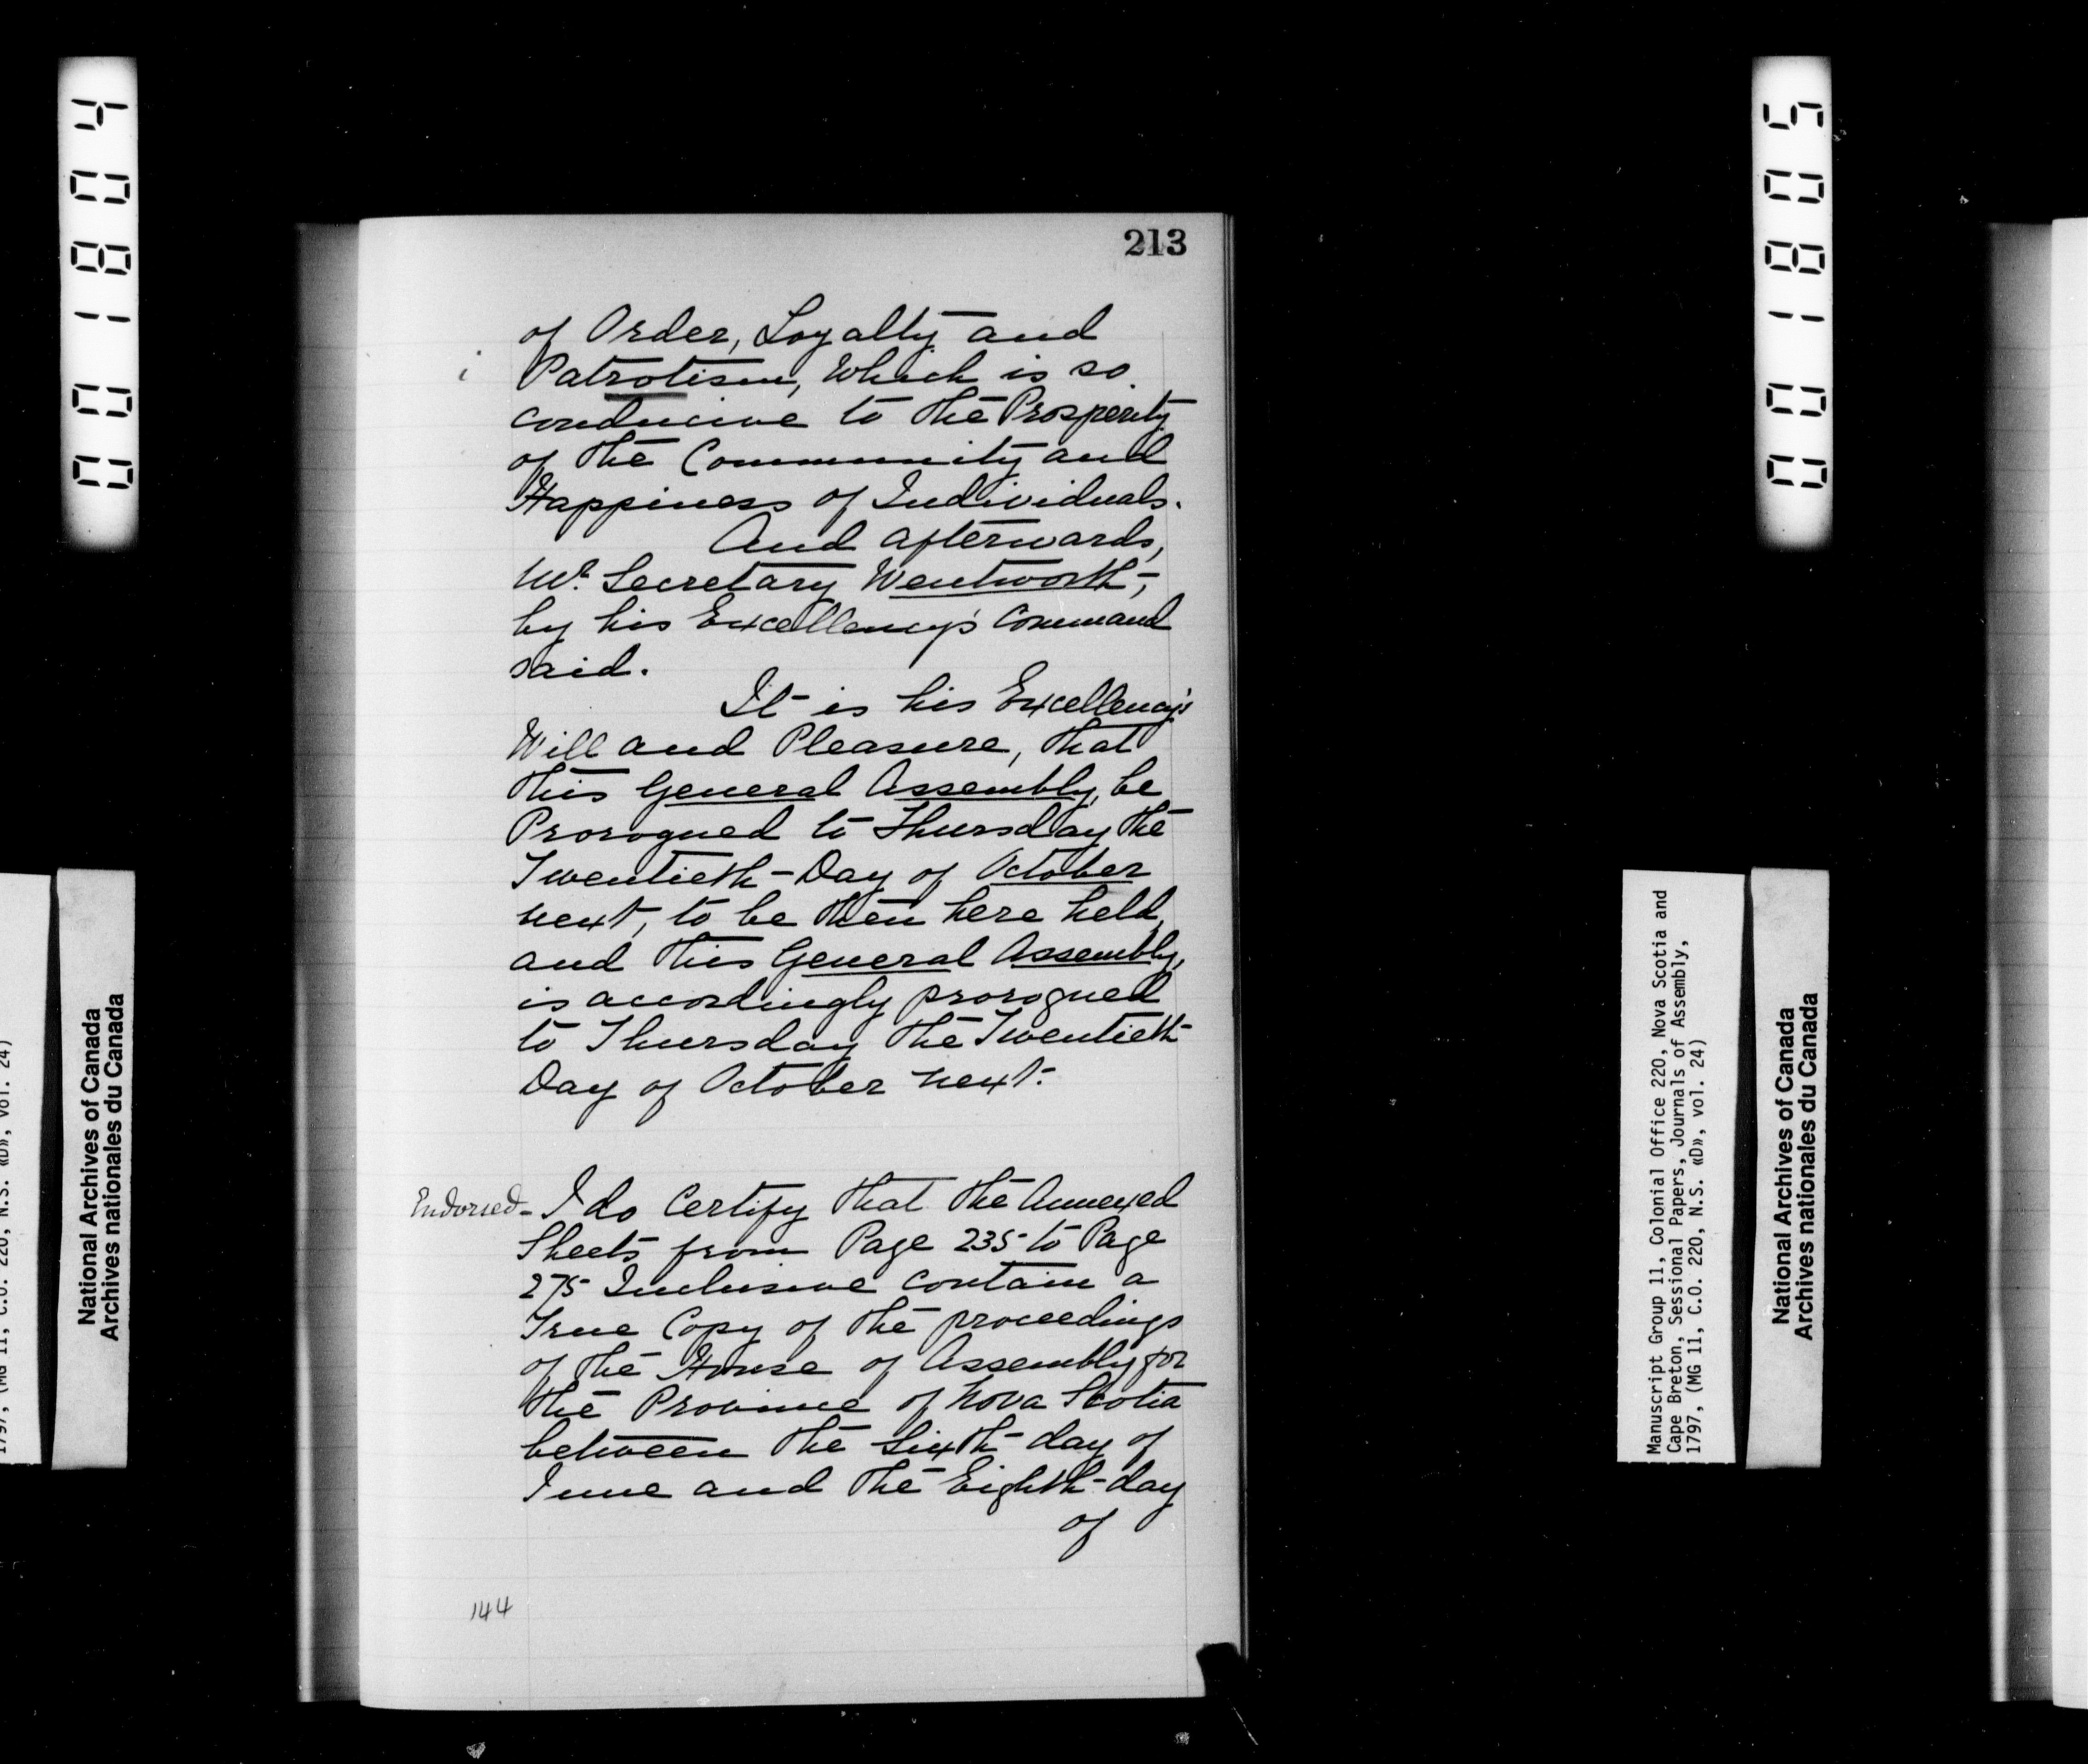 213
of Order, Loyalty and
i Patrotism, Which is so
conducive to the Prosperity
of the Community and
Happiness of Individuals.
And afterwards,
Mr. Secretary Wentworth,
by his Excellency's Command
said.
It is his Excellency's
Will and Pleasure, that
this General Assembly, be
Prorogued to Thursday the
Twentieth-Day of October
next, to be then here held,
and this General Assembly,
is accordingly prorogued
to Thursday the Twentieth
Day of October next.
Endorsed - I do Certify that the Annexed
Sheets from Page 235 to Page
275 Inclusive contain a
True Copy of the proceedings
of the House of Assembly for
the Province of Nova Scotia
between the Sixth day of
June and the Eighth-day
of
144
001804
National Archives of Canada
Archives nationales du Canada
1797, (MG 11, C.O. 220, N.S. «D», vol. 24)
001805
Manuscript Group 11, Colonial Office 220, Nova Scotia and
Cape Breton, Sessional Papers, Journals of Assembly,
1797, (MG 11, C.O. 220, N.S. «D», vol. 24)
National Archives of Canada
Archives nationales du Canada